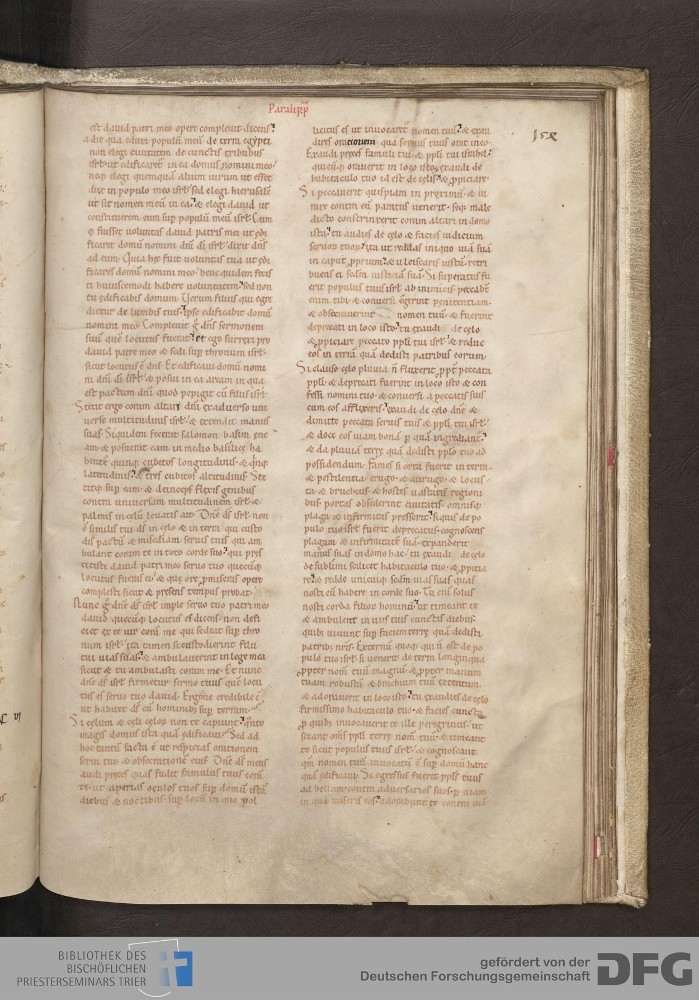 Paralipp
158
est david patri meo opere complevit dicens.
A die qua eduxi populū meū de terra egypti
non elegi civitatem de cunctis tribubus
isrl ut edificaret in ea domus nomini meo.
neq; elegi quemquā alium virum ut esset
dux in populo meo isrl sed elegi hierusalē
ut sit nomen meū in ea. & elegi david ut
constituerem eum sup populū meū isrl. Cum
q fuisset voluntas david patris mei ut edi
ficaret domū nomini dni di isrl. dixit dns
ad eum. Quia hec fuit voluntas tua ut edi
ficares domū nomini meo. bene quidem fecisti
huiuscemodi habere voluntatem. sed non
tu edificabis domum. Verum filius qui egre
dietur de lumbis tuis. ipse edificabit domū
nomini meo. Complevit g dns sermonem
suū quē locutus fuerat. et ego surrexi pro
david patre meo & sedi sup thronum isrl.
sicut locutus ē dns. Et edificavi domū nomi
ni dni di isrl. & posui in ea arcam in qua
est pactum dni quod pepigit cū filiis isrl.
Stetit ergo coram altari dni ex adverso uni
verse multitudinis isrl. & extendit manus
suas. Siquidem fecerat salomon basim ene
am. & posuerat eam in medio basilice ha
bentē quinq; cubitos longitudinis. & qnq;
latitudinis. & tres cubitos altitudinis. Ste
titq; sup eam. & deinceps flexis genibus
contra universam multitudinem isrl. &
palmis in celū levatis ait. Dne ds isrl. non
ē similis tui ds in celo & in terra. qui custo
dis pactū & misedīam servis tuis qui am
bulant coram te in toto corde suo. qui pres
titisti david patri meo servo tuo quecūq;
locutus fueras ei. & que ore pmiseras opere
complesti sicut & presens tempus probat.
Nunc g dne ds isrl imple servo tuo patri meo
david quecūq; locutus es dicens. non defi
ciet ex te vir corā me qui sedeat sup thro
num isrl. ita tamen si custodierint filii
tui vias suas. & ambulaverint in lege mea
sicut & tu ambulasti coram me. Et nunc
dne ds isrl firmetur sermo tuus quē locu
tus es servo tuo david. Ergone credibile ē
ut habitet ds cū hominibus sup terram.
Si celum & celi celoz non te capiunt. qnto
magis domus ista quā edificavi. Sed ad
hoc tantū facta ē ut respicias orationem
servi tui & obsecrationē eius. Dne ds meus
audi preces quas fudit famulus tuus corā
te. ut aperias oculos tuos sup domū istā
diebus & noctibus. sup locū in quo pol
licitus es ut invocaret nomen tuū. & exau
dires orationem quā servus tuus orat in eo.
Exaudi preces famuli tui. & ppli tui israhel.
quicūq; oraverit in loco isto. exaudi de
habitaculo tuo id est de celis. & ppiciare.
Si peccaverit quispiam in proximū. & iu
rare contra eū paratus venerit. seq; male
dicto constrinxerit coram altari in domo
ista. tu audies de celo & facies iudicium
servoru tuoz. ita ut reddas iniquo viā suā
in caput pprium. & ulciscaris iustū. retri
buens ei scdm iusticiā suā. Si superatus fu
erit populus tuus isrl ab inimicis. peccabt
enim tibi. & conversi egerint penitentiam.
& obsecraverint nomen tuū. & fuerint
deprecati in loco isto. tu exaudi de celo
& ppiciare peccato ppli tui isrl. & reduc
eos in terrā quā dedisti patribus eorum.
Si clauso celo pluvia n fluxerit ppt peccata
ppli. & deprecati fuerint in loco isto & con
fessi nomini tuo. & conversi a peccatis suis
cum eos afflixeris. exaudi de celo dne &
dimitte peccata servis tuis & ppli tui isrl.
& doce eos viam bonā p quā ingrediant.
& da pluviā terre quā dedisti pplo tuo ad
possidendum. Fames si orta fuerit in terra.
& pestilentia. erugo. & aurugo. & locus
ta. & bruchus. & hostes vastatis regioni
bus portas obsederint civitatis. omnisq;
plaga & infirmitas presserit. siquis de po
pulo tuo isrl fuerit deprecatus. cognoscens
plagam & infirmitatē suā. expanderit
manus suas in domo hac. tu exaudi de celo
de sublimi scilicet habitaculo tuo. & ppitia
re. & redde unicuiq; scdm vias suas quas
nosti eū habere in corde suo. Tu eni solus
nosti corda filioz hominū. ut timeant te
& ambulent in viis tuis cunctis diebus.
quibus vivunt sup faciem terre quā dedisti
patribus nris. Externū quoq; qui n est de po
pulo tuo isrl. si venerit de terra longinqua
ppter nom tuū magnū. & ppter manum
tuam robustā & brachium tuū extentum.
& adoraverit in loco isto. tu exaudies de celo
firmissimo habitaculo tuo. & facies cuncta
p quibus invocaverit te ille peregrinus. ut
sciant oms ppli terre nom tuū. & timeant
te sicut populus tuus isrl. & cognoscant
qm nomen tuū invocatū ē sup domū hanc
quā edificavi. Si egressus fuerit ppls tuus
ad bellum contra adversarios suos. p viam
in qua miseris eos. adorabunt te contra viā
BIBLIOTHEK DES
BISCHÖFLICHEN
PRIESTERSEMINARS TRIER
gefördert von der
Deutschen Forschungsgemeinschaft
DFG